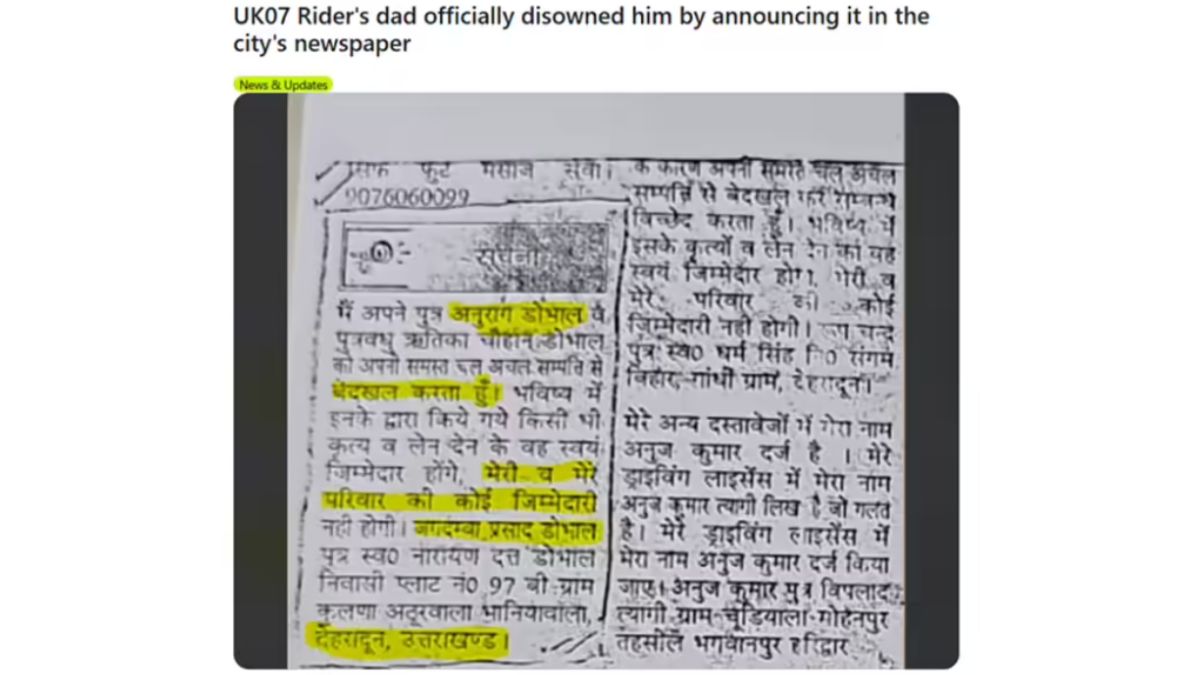 UK07 Rider's dad officially disowned him by announcing it in the
city's newspaper
News & Updates
फुट मसाज सेवा।
9076060099
सूचना
मैं अपने पुत्र अनुराग डोभाल व
पुत्रवधु ऋतिका चौहान डोभाल
को अपनी समस्त चल अचल सम्पति से
बेदखल करता हूँ। भविष्य में
इनके द्वारा किये गये किसी भी
कृत्य व लेन देन के वह स्वयं
जिम्मेदार होंगे, मेरी व मेरे
परिवार की कोई जिम्मेदारी
नही होगी। जगदम्बा प्रसाद डोभाल
पुत्र स्व0 नारायण दत्त डोभाल
निवासी प्लाट नं0 97 बी ग्राम
कुलणा अठूरवाला भानियावाला,
देहरादून, उत्तराखण्ड।
के कारण अपनी समस्त चल अचल
सम्पत्ति से बेदखल कर सम्बन्ध
विच्छेद करता हूँ। भविष्य में
इसके कृत्यों व लेन देन का वह
स्वयं जिम्मेदार होगा, मेरी व
मेरे परिवार की कोई
जिम्मेदारी नही होगी। रूप चन्द्र
पुत्र स्व0 धर्म सिंह नि0 संगम
विहार, गांधी ग्राम, देहरादून।
मेरे अन्य दस्तावेजों में मेरा नाम
अनुज कुमार दर्ज है । मेरे
ड्राइविंग लाइसेंस में मेरा नाम
अनुज कुमार त्यागी लिख है जो गलत
है। मेरे ड्राइविंग लाइसेंस में
मेरा नाम अनुज कुमार दर्ज किया
जाए। अनुज कुमार पुत्र विपलाद
त्यागी ग्राम-चूडियाला-मोहनपुर
तहसील भगवानपुर हरिद्वार